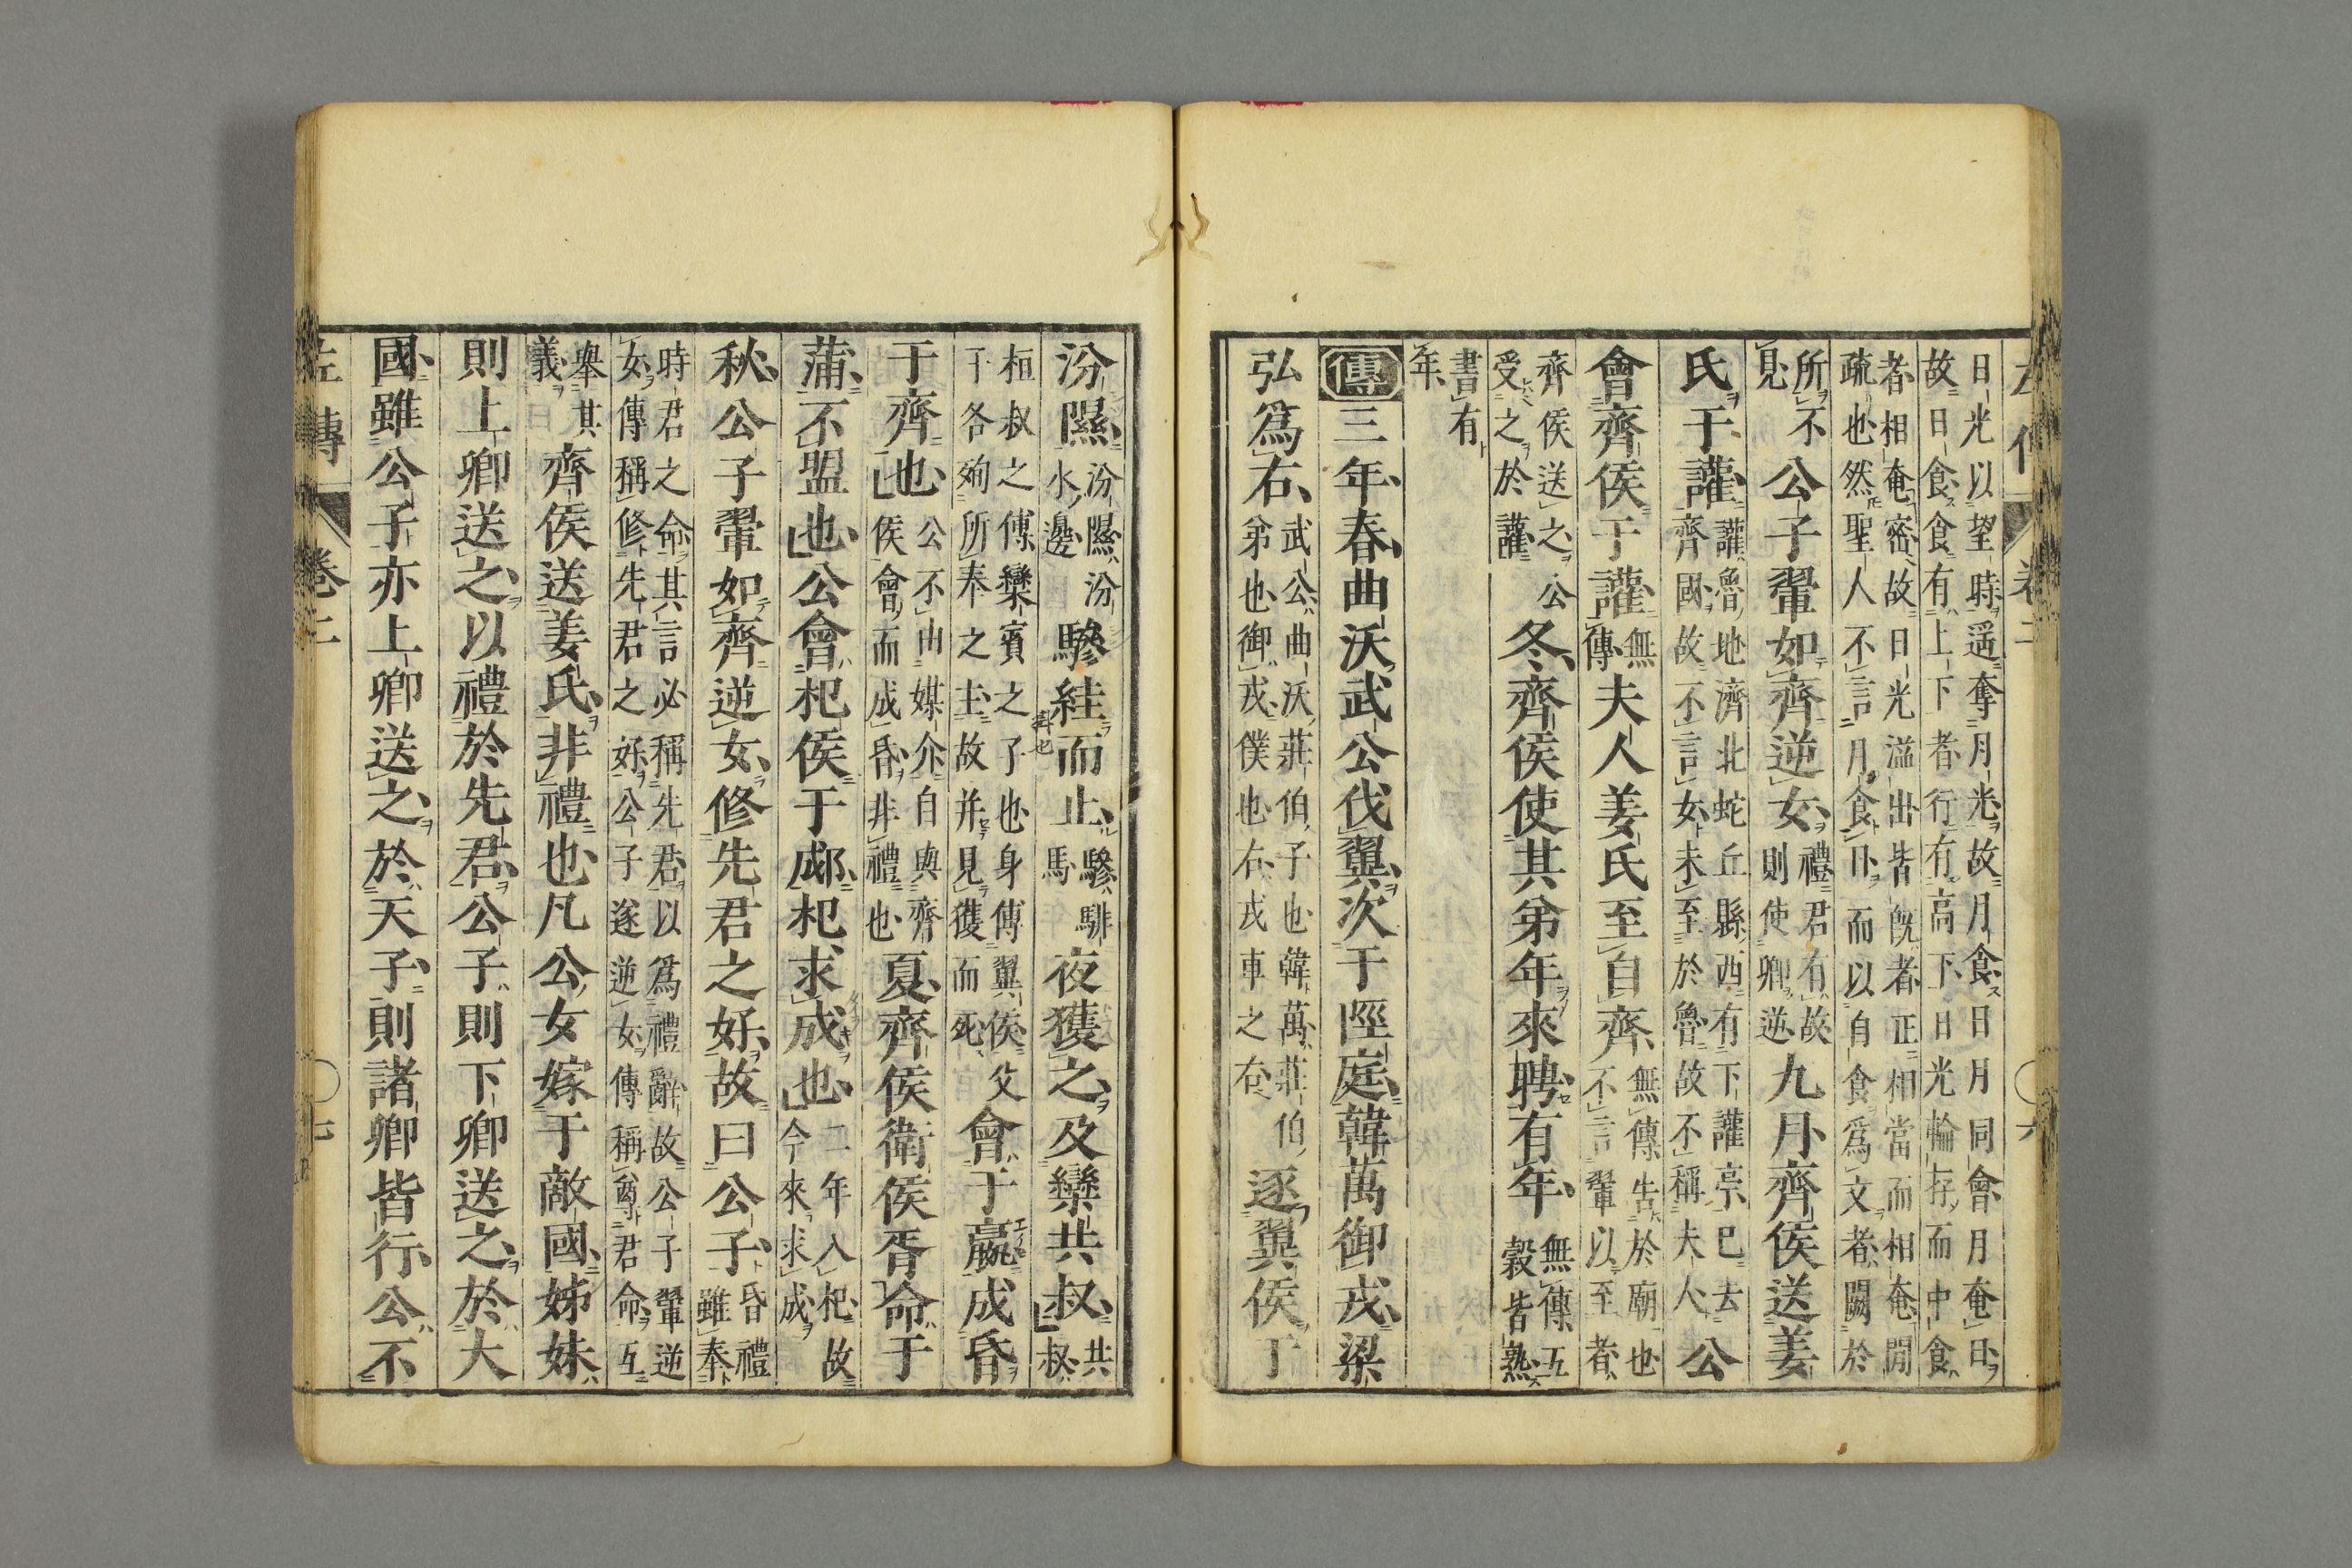 日光以望時遥奪月光故月食日月同會月奄日
故日食食有上下者行有高下日光輪存而中食
者相奄密故日光溢出皆既者正相當而相奄間
疏也然聖人不言月食日而以自食爲文者闕於
所不
見
公子翬如齊逆女
禮君有故
則使卿逆
九月齊侯送姜
氏于讙
讙魯地濟北蛇丘縣西有下讙亭已去
齊國故不言女未至於魯故不稱夫人
公
會齊侯于讙
無
傳
夫人姜氏至自齊
無傳告於廟也
不言翬以至者
齊侯送之公
受之於讙
冬齊侯使其弟年來聘有年
無傳五
穀皆熟
書有
年
傳三年春曲沃武公伐翼次于陘庭韓萬御戎梁
弘爲右
武公曲沃莊伯子也韓萬莊伯
弟也御戎僕也右戎車之右
逐翼侯于
汾隰
汾隰汾
水邊
驂絓而止
驂騑
馬
夜獲之及欒共叔
共
叔
桓叔之傅欒賓之子也身傅翼侯父
子各殉所奉之主故并見獲而死
會于嬴成昏
于齊也
公不由媒介自與齊
侯會而成昏非禮也
夏齊侯衛侯胥命于
蒲不盟也公會杞侯于郕杞求成也
二年入杞故
今來求成
秋公子翬如齊逆女修先君之好故曰公子
昏禮
雖奉
時君之命其言必稱先君以爲禮辭故公子翬逆
女傳稱修先君之好公子遂逆女傳稱尊君命互
舉其
義
齊侯送姜氏非禮也凡公女嫁于敵國姊妹
則上卿送之以禮於先君公子則下卿送之於大
國雖公子亦上卿送之於天子則諸卿皆行公不
左傳
卷二
七